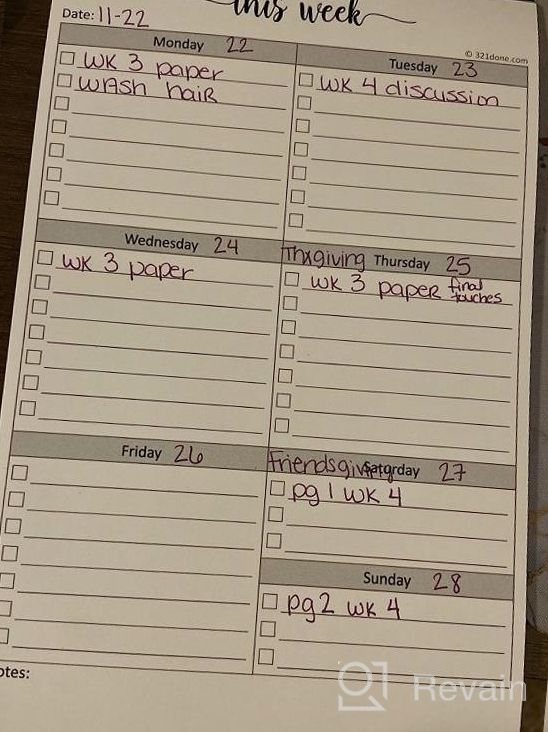 this week
Date: 11-22
© 321done.com
Monday 22
WK 3 paper
WASH haiR
Tuesday 23
WK 4 discussion
Wednesday 24
WK 3 paper
Thxgiving Thursday 25
WK 3 papeR final touches
Friday 26
Friendsgiving Saturday 27
pg 1 WK 4
Sunday 28
pg 2 WK 4
otes:
Revain